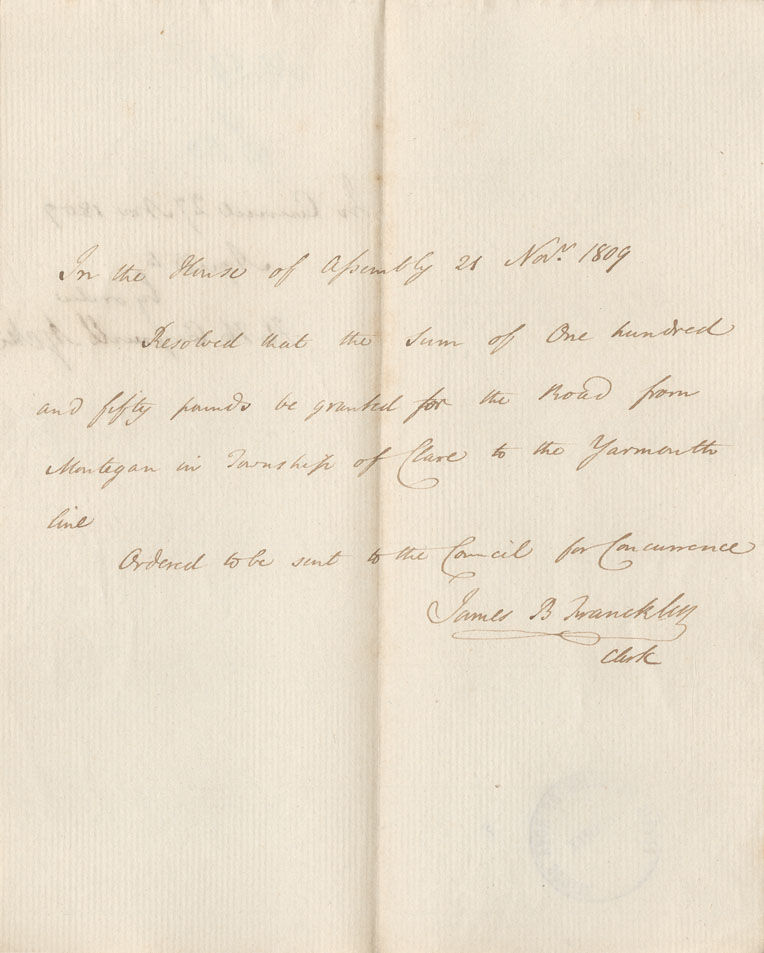 In the House of Assembly 21 Novr. 1809
Resolved that the Sum of One hundred
and fifty pounds be granted for the Road from
Montegan in Township of Clare to the Yarmouth
line
Ordered to be sent to the Council for Concurrence
James B Francklin
Clerk